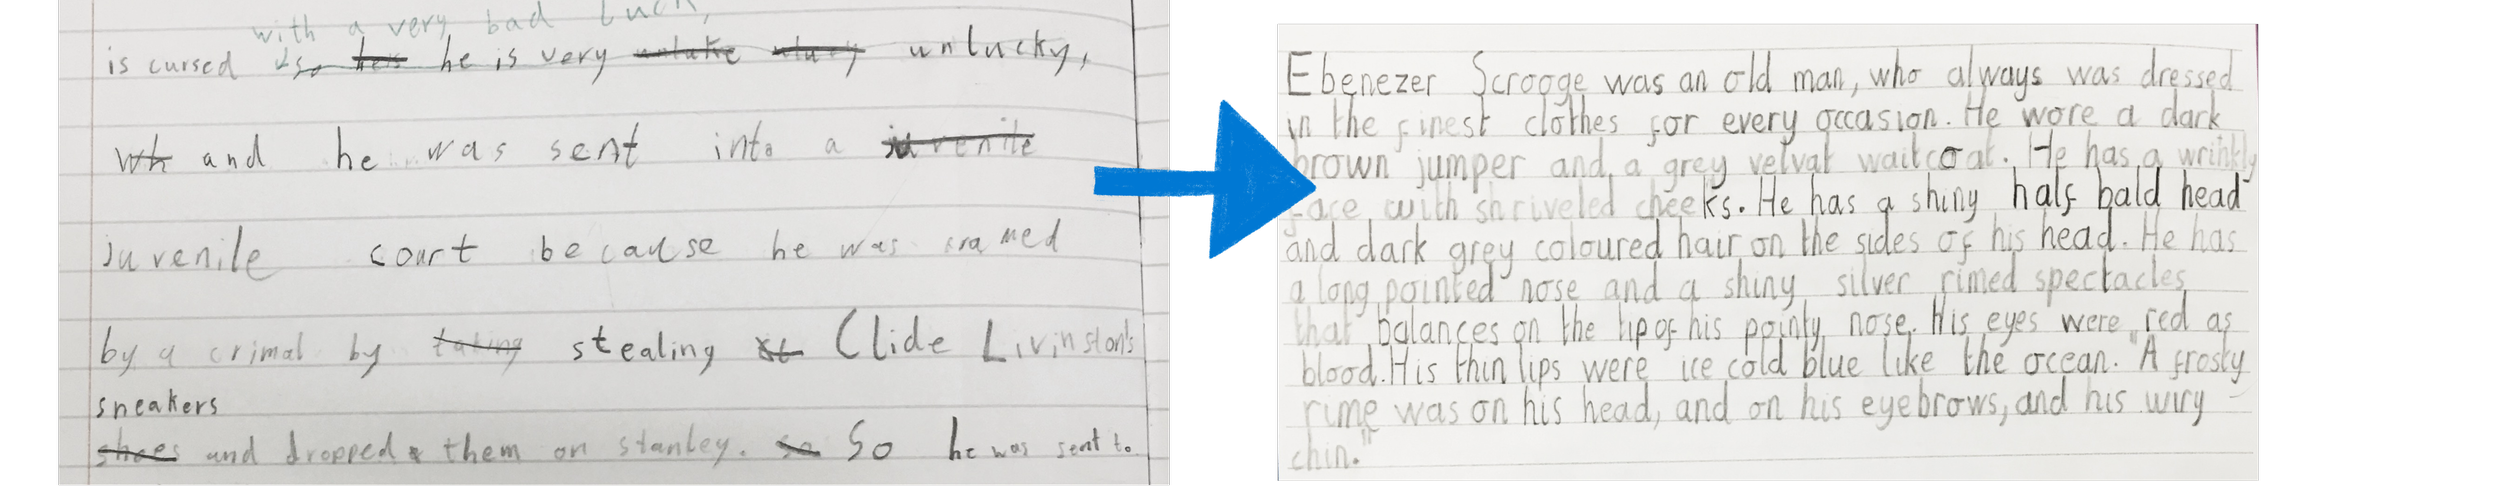 with a very bad luck,
is cursed so he is very unlucky,
wh and he was sent into a juvenile
juvenile court because he was
by a crimal by taking stealing Clide Livinston's
sneakers
shoes and dropped them on stanley. so So he was sent to
Ebenezer Scrooge was an old man, who always was dressed
in the finest clothes for every occasion. He wore a dark
brown jumper and a grey velvat waitcoat. He has a wrinkly
face with shriveled cheeks. He has a shiny half bald head
and dark grey coloured hair on the sides of his head. He has
a long pointed nose and a shiny silver rimed spectacles
that balances on the tip of his pointy nose. His eyes were red as
blood. His thin lips were ice cold blue like the ocean. "A frosty
rime was on his head, and on his eyebrows, and his wiry
chin."